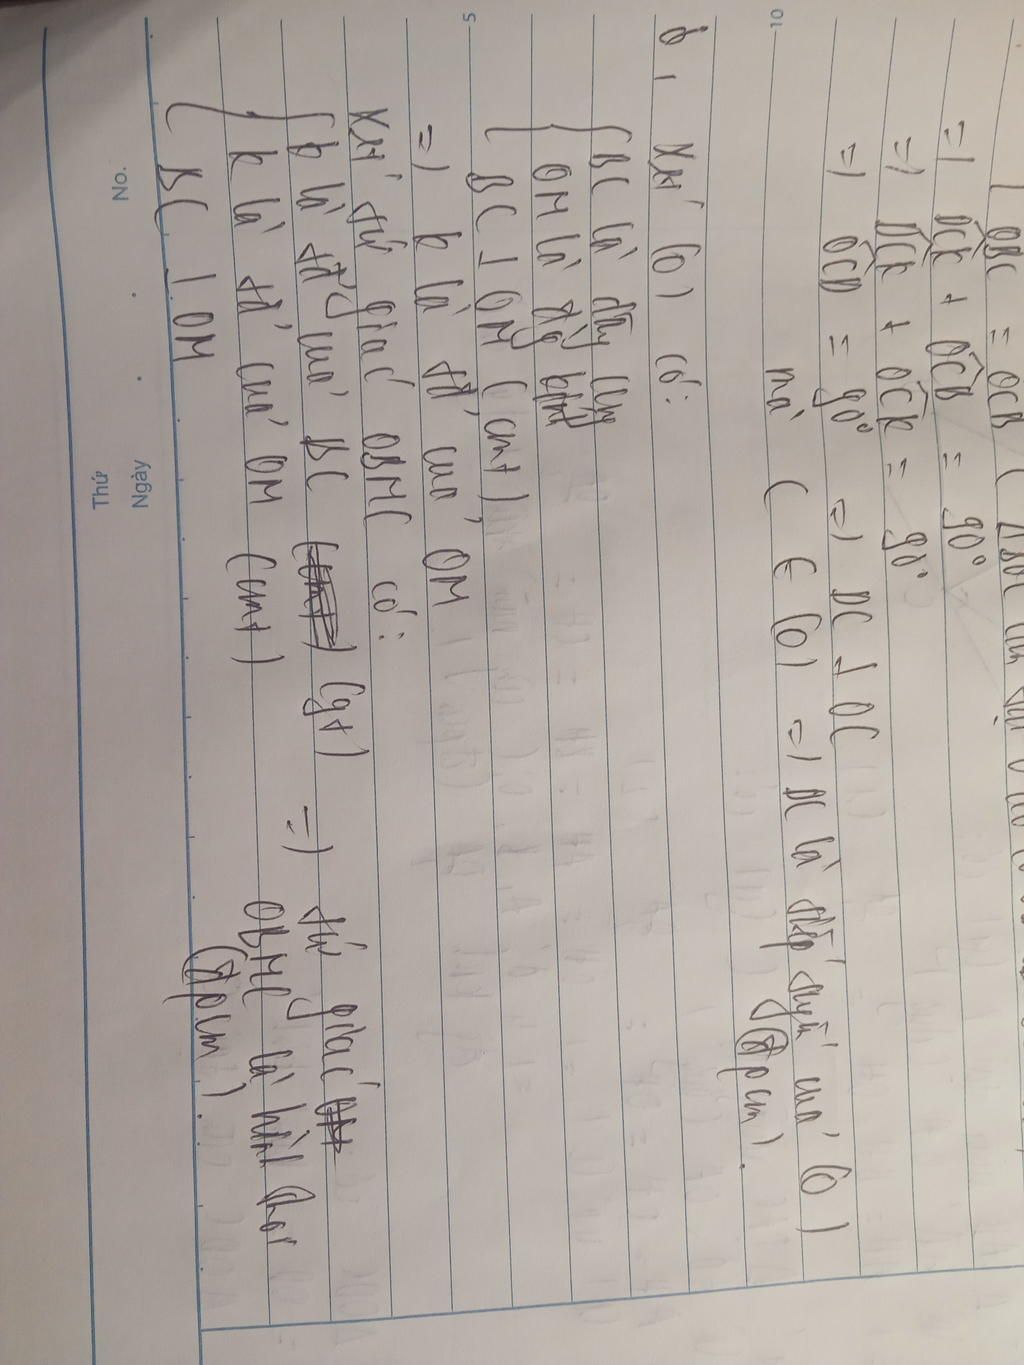 OBC = OCB ( ΔBOC cân tại O
=) DCK + OCB = 90°
=) DCK + OCK = 90°
=) OCD = 90° =) DC ⊥ OC
mà C ∈ (O) =) DC là tiếp tuyến của (O)
(đpcm).
b, Xét (O) có:
BC là dây cung
OM là
BC ⊥ OM (cmt)
=) K là tđ của OM
Xét tứ giác OBMC có:
K là tđ của BC (gt)
K là tđ của OM (cmt)
BC ⊥ OM
=) tứ giác
OBMC là hình thoi
(đpcm)
5
10
No.
Thứ
Ngày